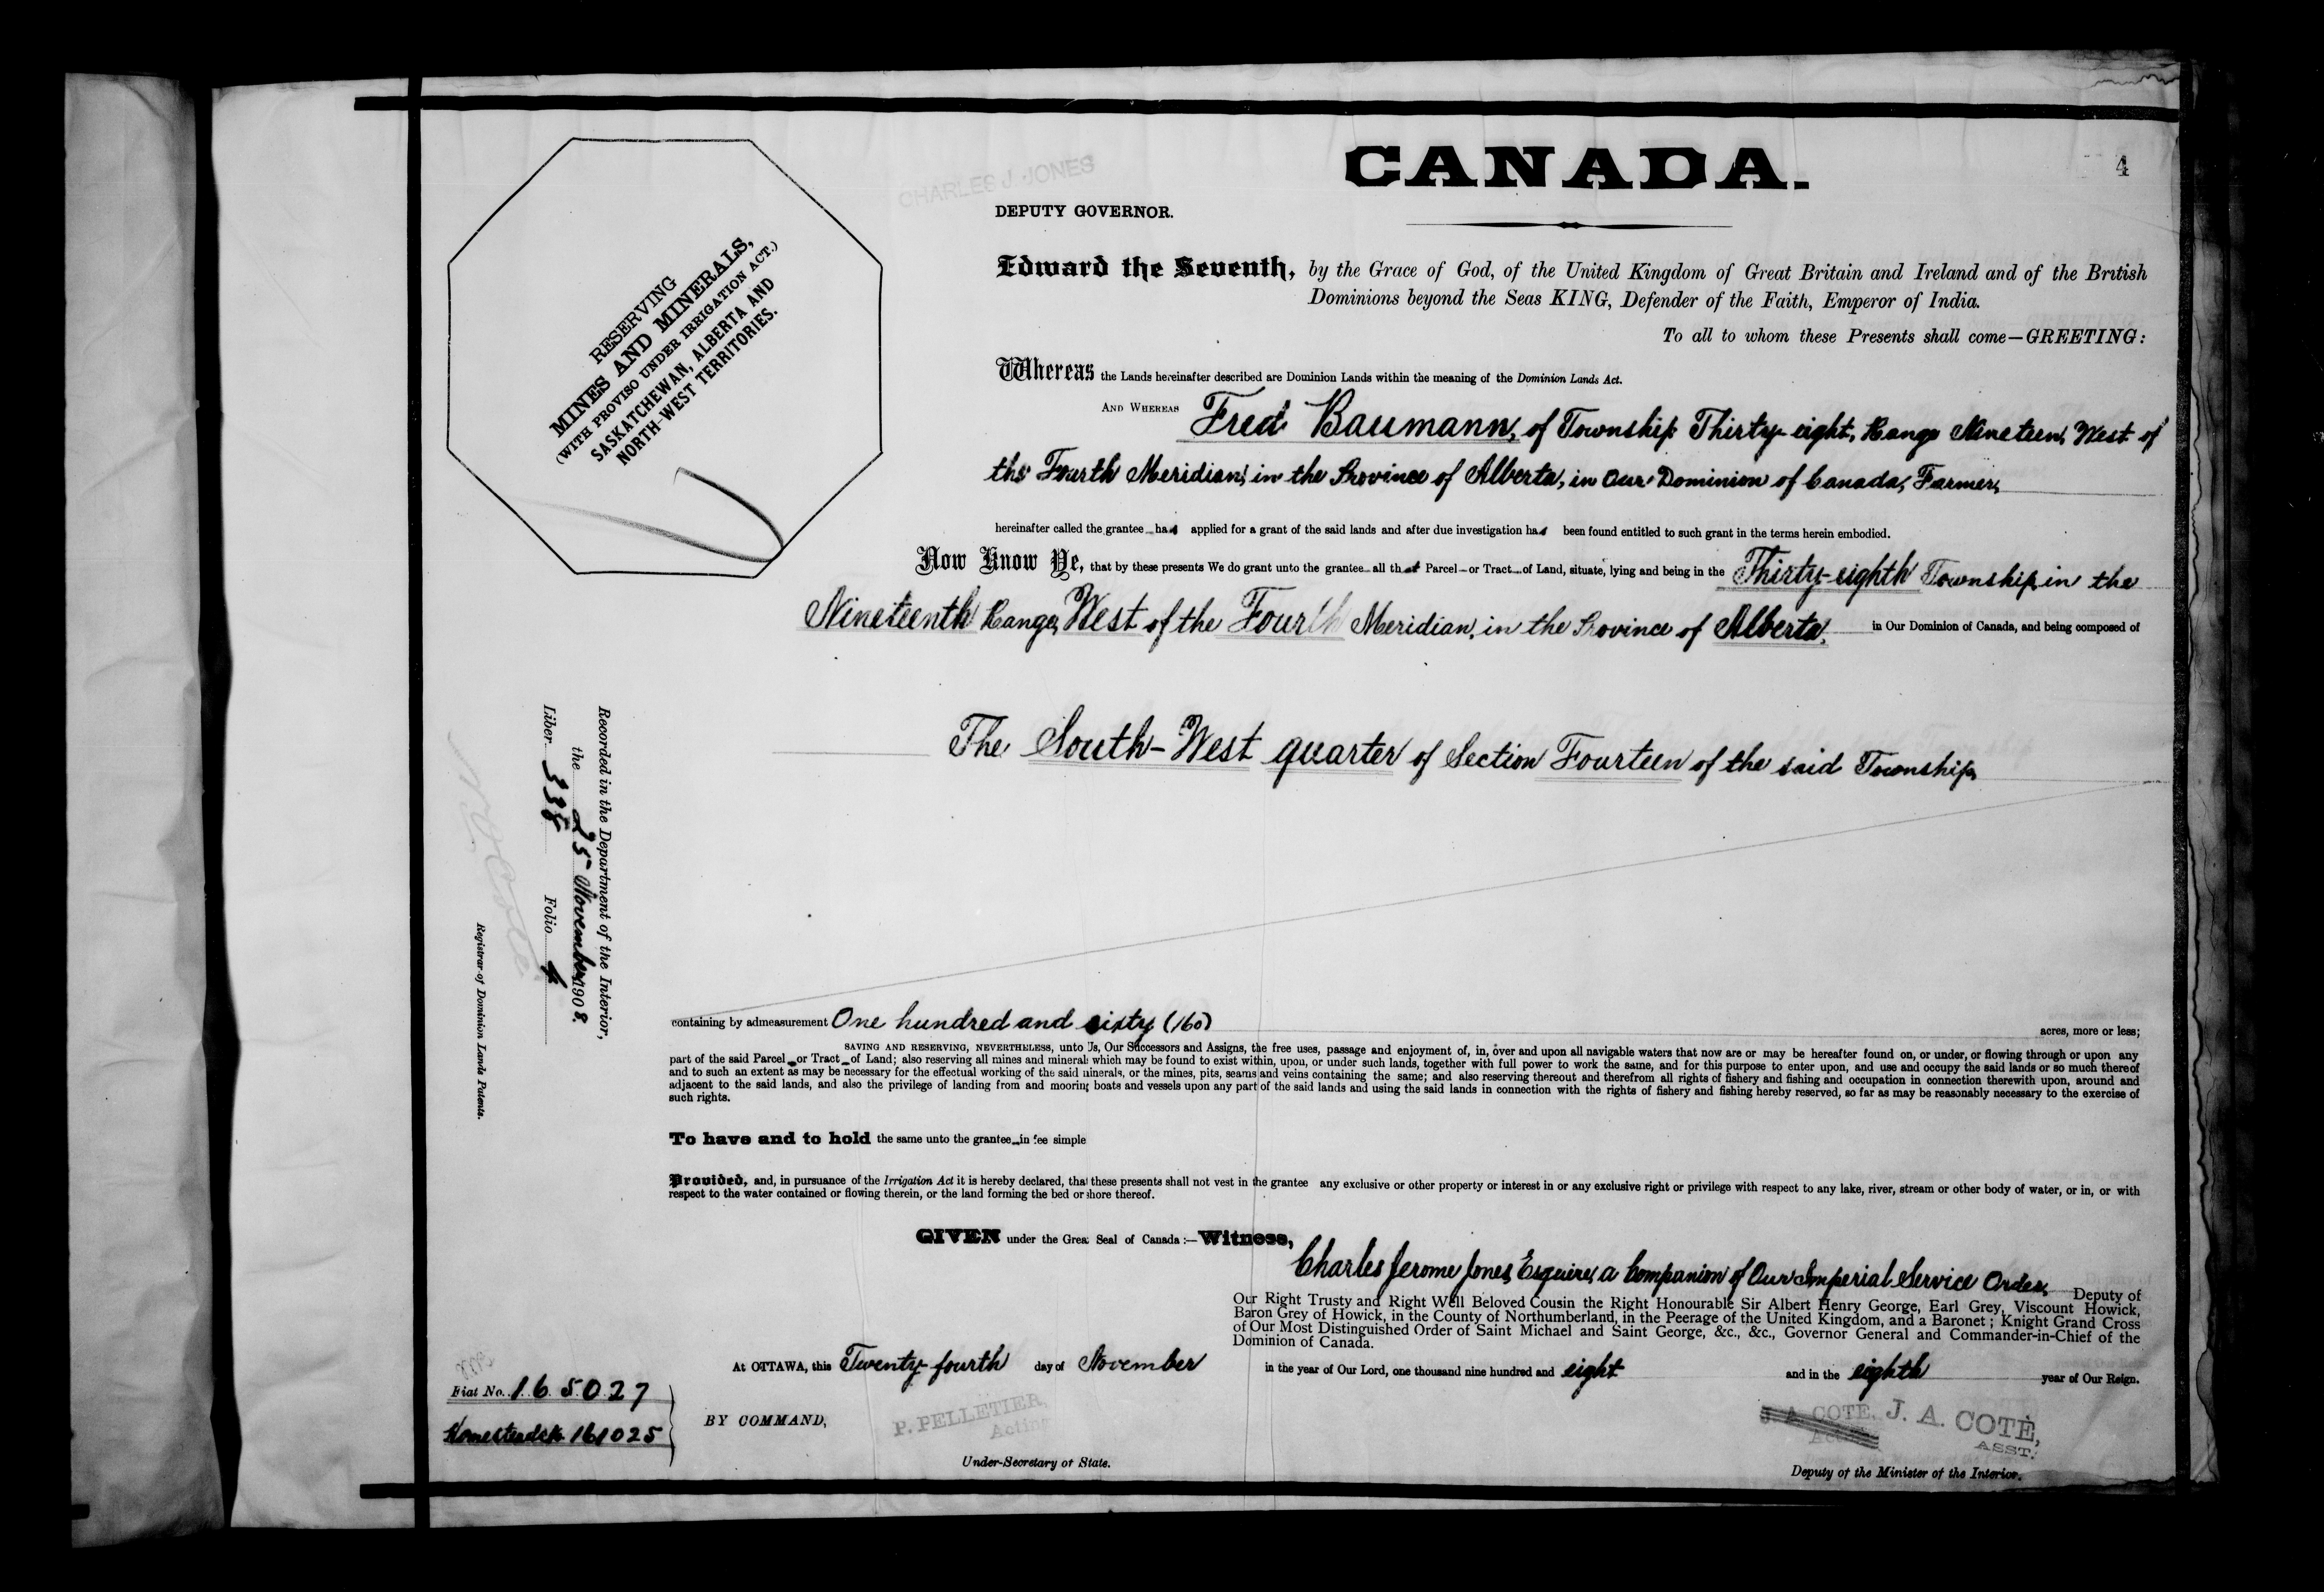 CANADA.
4
CHARLES J. JONES
DEPUTY GOVERNOR.
RESERVING
MINES AND MINERALS,
(WITH PROVISO UNDER IRRIGATION ACT.)
SASKATCHEWAN, ALBERTA AND
NORTH-WEST TERRITORIES.
Edward the Seventh, by the Grace of God, of the United Kingdom of Great Britain and Ireland and of the British
Dominions beyond the Seas KING, Defender of the Faith, Emperor of India.
To all to whom these Presents shall come—GREETING:
Whereas the Lands hereinafter described are Dominion Lands within the meaning of the Dominion Lands Act.
AND WHEREAS Fred Baumann, of Township Thirty-eight, Range Nineteen, West of
the Fourth Meridian, in the Province of Alberta, in Our Dominion of Canada, Farmer,
hereinafter called the grantee has applied for a grant of the said lands and after due investigation has been found entitled to such grant in the terms herein embodied.
Now Know Ye, that by these presents We do grant unto the grantee all that Parcel or Tract of Land, situate, lying and being in the Thirty-eighth Township, in the
Nineteenth Range, West of the Fourth Meridian, in the Province of Alberta, in Our Dominion of Canada, and being composed of
The South-West quarter of Section Fourteen of the said Township,
Recorded in the Department of the Interior,
the 25 November 1908.
Liber 338 Folio 4
Registrar of Dominion Lands Patents.
containing by admeasurement One hundred and sixty (160) acres, more or less;
SAVING AND RESERVING, NEVERTHELESS, unto Us, Our Successors and Assigns, the free uses, passage and enjoyment of, in, over and upon all navigable waters that now are or may be hereafter found on, or under, or flowing through or upon any
part of the said Parcel or Tract of Land; also reserving all mines and minerals which may be found to exist within, upon, or under such lands, together with full power to work the same, and for this purpose to enter upon, and use and occupy the said lands or so much thereof
and to such an extent as may be necessary for the effectual working of the said minerals, or the mines, pits, seams and veins containing the same; and also reserving thereout and therefrom all rights of fishery and fishing and occupation in connection therewith upon, around and
adjacent to the said lands, and also the privilege of landing from and mooring boats and vessels upon any part of the said lands and using the said lands in connection with the rights of fishery and fishing hereby reserved, so far as may be reasonably necessary to the exercise of
such rights.
To have and to hold the same unto the grantee in fee simple
Provided, and, in pursuance of the Irrigation Act it is hereby declared, that these presents shall not vest in the grantee any exclusive or other property or interest in or any exclusive right or privilege with respect to any lake, river, stream or other body of water, or in, or with
respect to the water contained or flowing therein, or the land forming the bed or shore thereof.
GIVEN under the Great Seal of Canada:—Witness,
Charles Jerome Jones, Esquire, a Companion of Our Imperial Service Order, Deputy of
Our Right Trusty and Right Well Beloved Cousin the Right Honourable Sir Albert Henry George, Earl Grey, Viscount Howick,
Baron Grey of Howick, in the County of Northumberland, in the Peerage of the United Kingdom, and a Baronet; Knight Grand Cross
of Our Most Distinguished Order of Saint Michael and Saint George, &c., &c., Governor General and Commander-in-Chief of the
Dominion of Canada.
At OTTAWA, this Twenty-fourth day of November in the year of Our Lord, one thousand nine hundred and eight and in the eighth year of Our Reign.
Fiat No. 165027
Homesteads 161025
BY COMMAND,
P. PELLETIER,
Acting
Under-Secretary of State.
J. A. COTE,
J. A. COTÉ,
ASST.
Deputy of the Minister of the Interior.